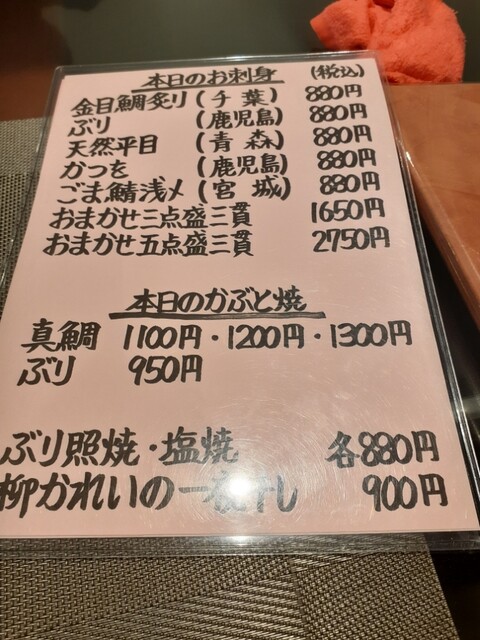 本日のお刺身 (税込)
金目鯛炙り(千葉) 880円
ぶり (鹿児島) 880円
天然平目 (青森) 880円
かつを (鹿児島) 880円
ごま鯖浅〆(宮城) 880円
おまかせ三点盛三貫 1650円
おまかせ五点盛三貫 2750円
本日のかぶと焼
真鯛 1100円・1200円・1300円
ぶり 950円
ぶり照焼・塩焼 各880円
柳かれいの一 干し 900円